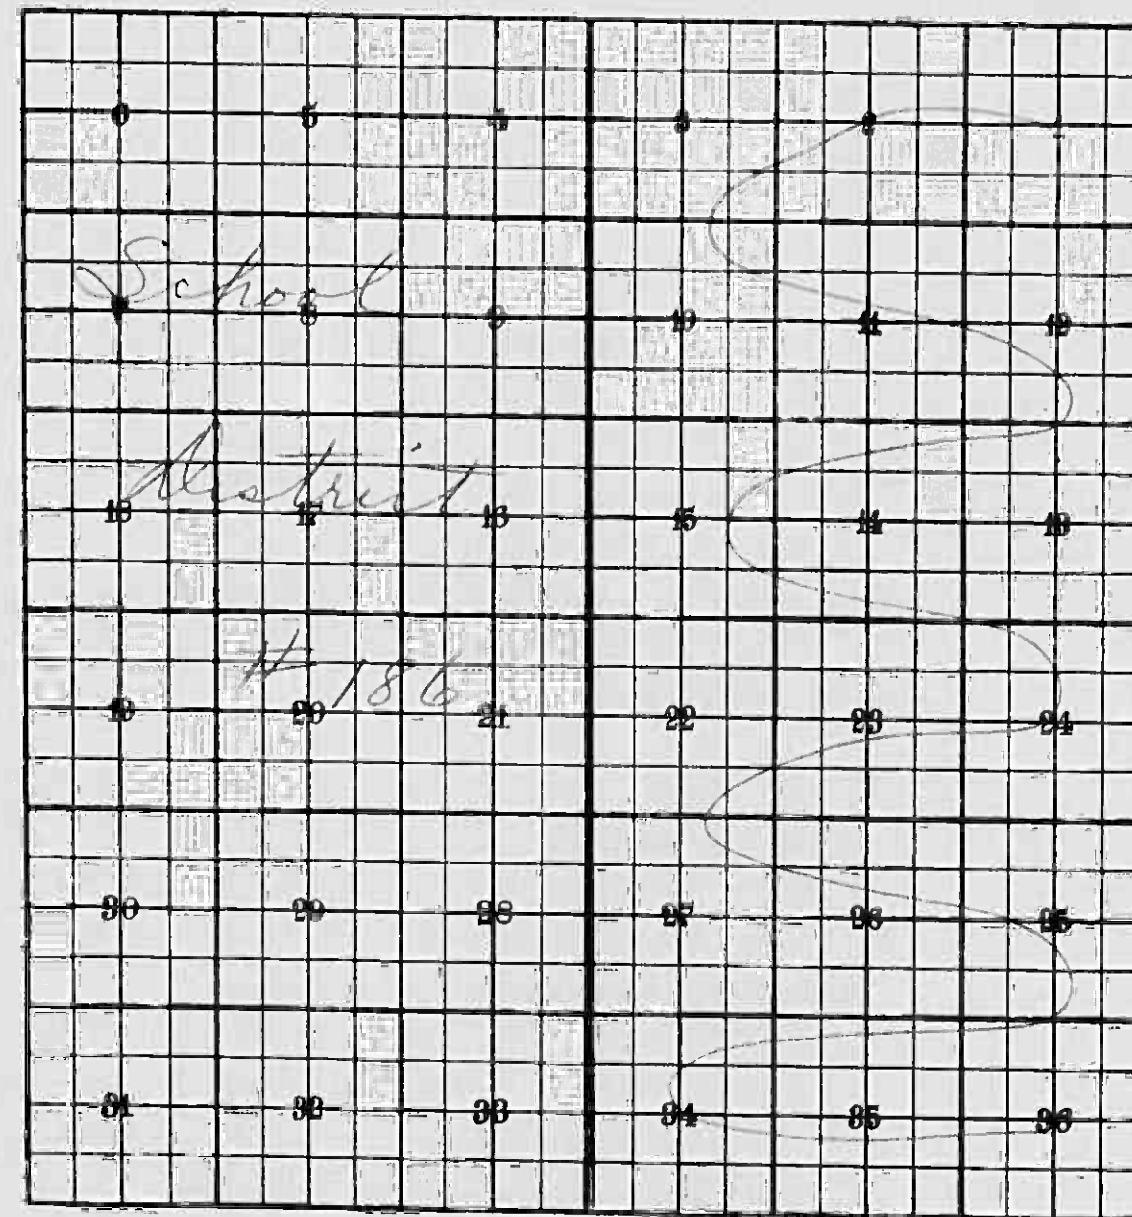 6 5 4 3 2
School
7 8 9 10 11 12
District
18 17 16 15 14 13
# 186
19 20 21 22 23 24
30 29 28 27 26 25
31 32 33 34 35 36